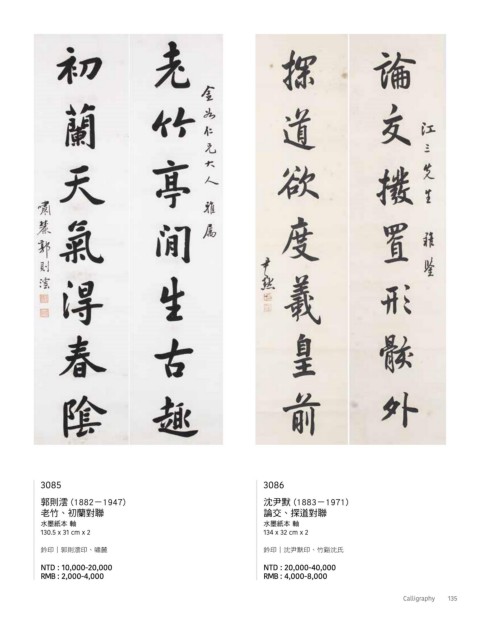 老竹亭閒生古趣
金如仁兄大人 雅屬
初蘭天氣得春陰
嘯麓郭則澐
論交撥置形骸外
江三先生 雅鑒
探道欲度羲皇前
尹默
3085
郭則澐 (1882－1947)
老竹、初蘭對聯
水墨紙本 軸
130.5 x 31 cm x 2
鈐印｜郭則澐印、嘯麓
NTD : 10,000-20,000
RMB : 2,000-4,000
3086
沈尹默 (1883－1971)
論交、探道對聯
水墨紙本 軸
134 x 32 cm x 2
鈐印｜沈尹默印、竹谿沈氏
NTD : 20,000-40,000
RMB : 4,000-8,000
Calligraphy 135